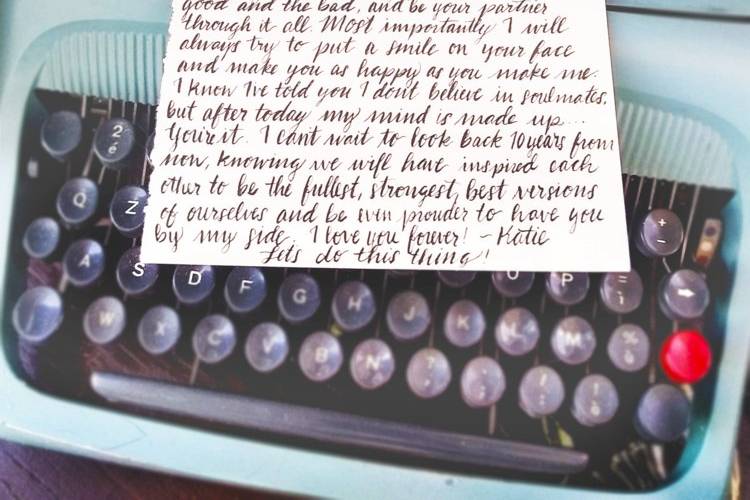 good and the bad, and be your partner
through it all. Most importantly I will
always try to put a smile on your face
and make you as happy as you make me.
I know I've told you I don't believe in soulmates,
but after today my mind is made up...
You're it. I can't wait to look back 10 years from
now, knowing we will have inspired each
other to be the fullest, strongest, best versions
of ourselves and be even prouder to have you
by my side. I love you forever! ~ Katie
Let's do this thing!!
2 é
Q Z + -
A S D F G H J K O P = :
W X C V B N ? , ! % ù M